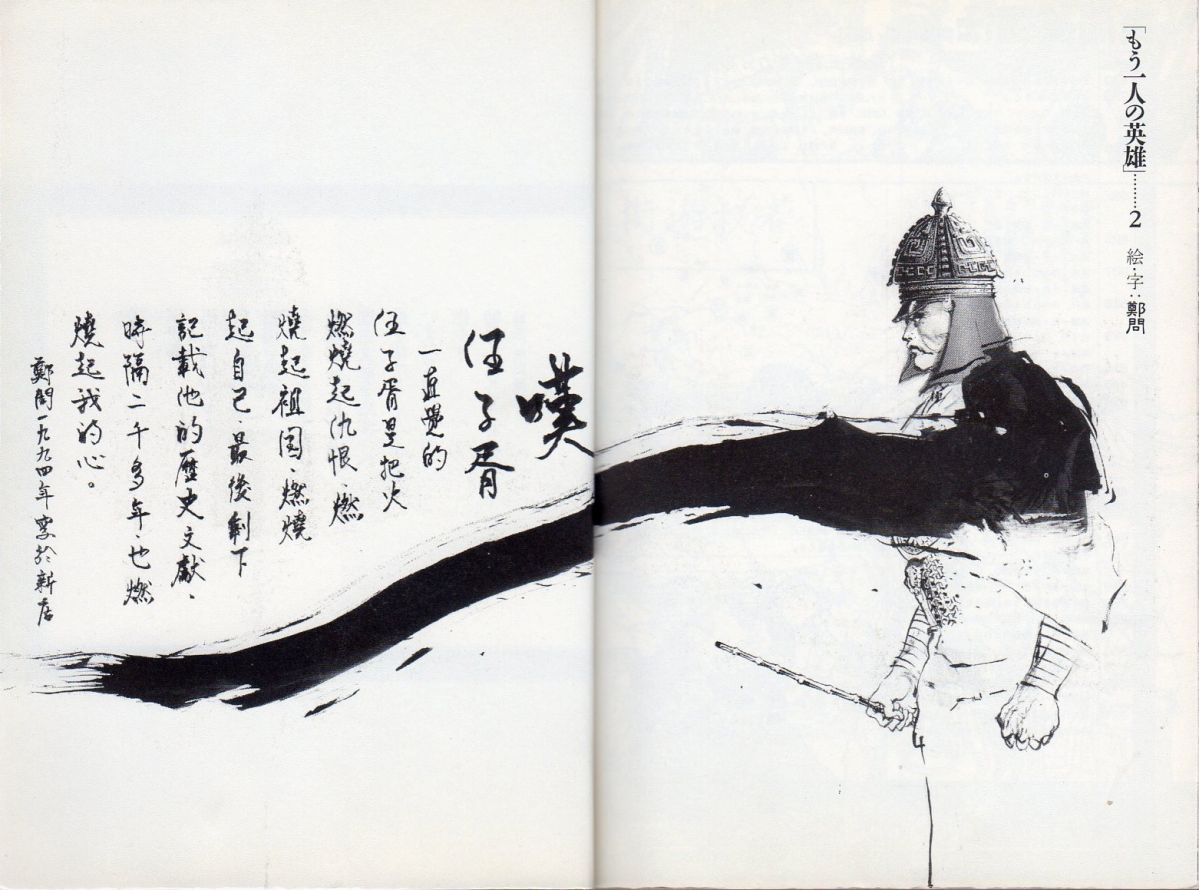 「もう一人の英雄」……2 絵・字:鄭問
嘆
伍子胥
一直覺的
伍子胥是把火
燃燒起仇恨、燃
燒起祖国、燃燒
起自己、最後剩下
記載他的歷史文獻、
時隔二千多年、也燃
燒起我的心。
鄭問一九九四年於新店